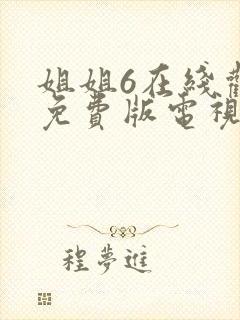 姐姐6在綫
免費版電視
程夢進